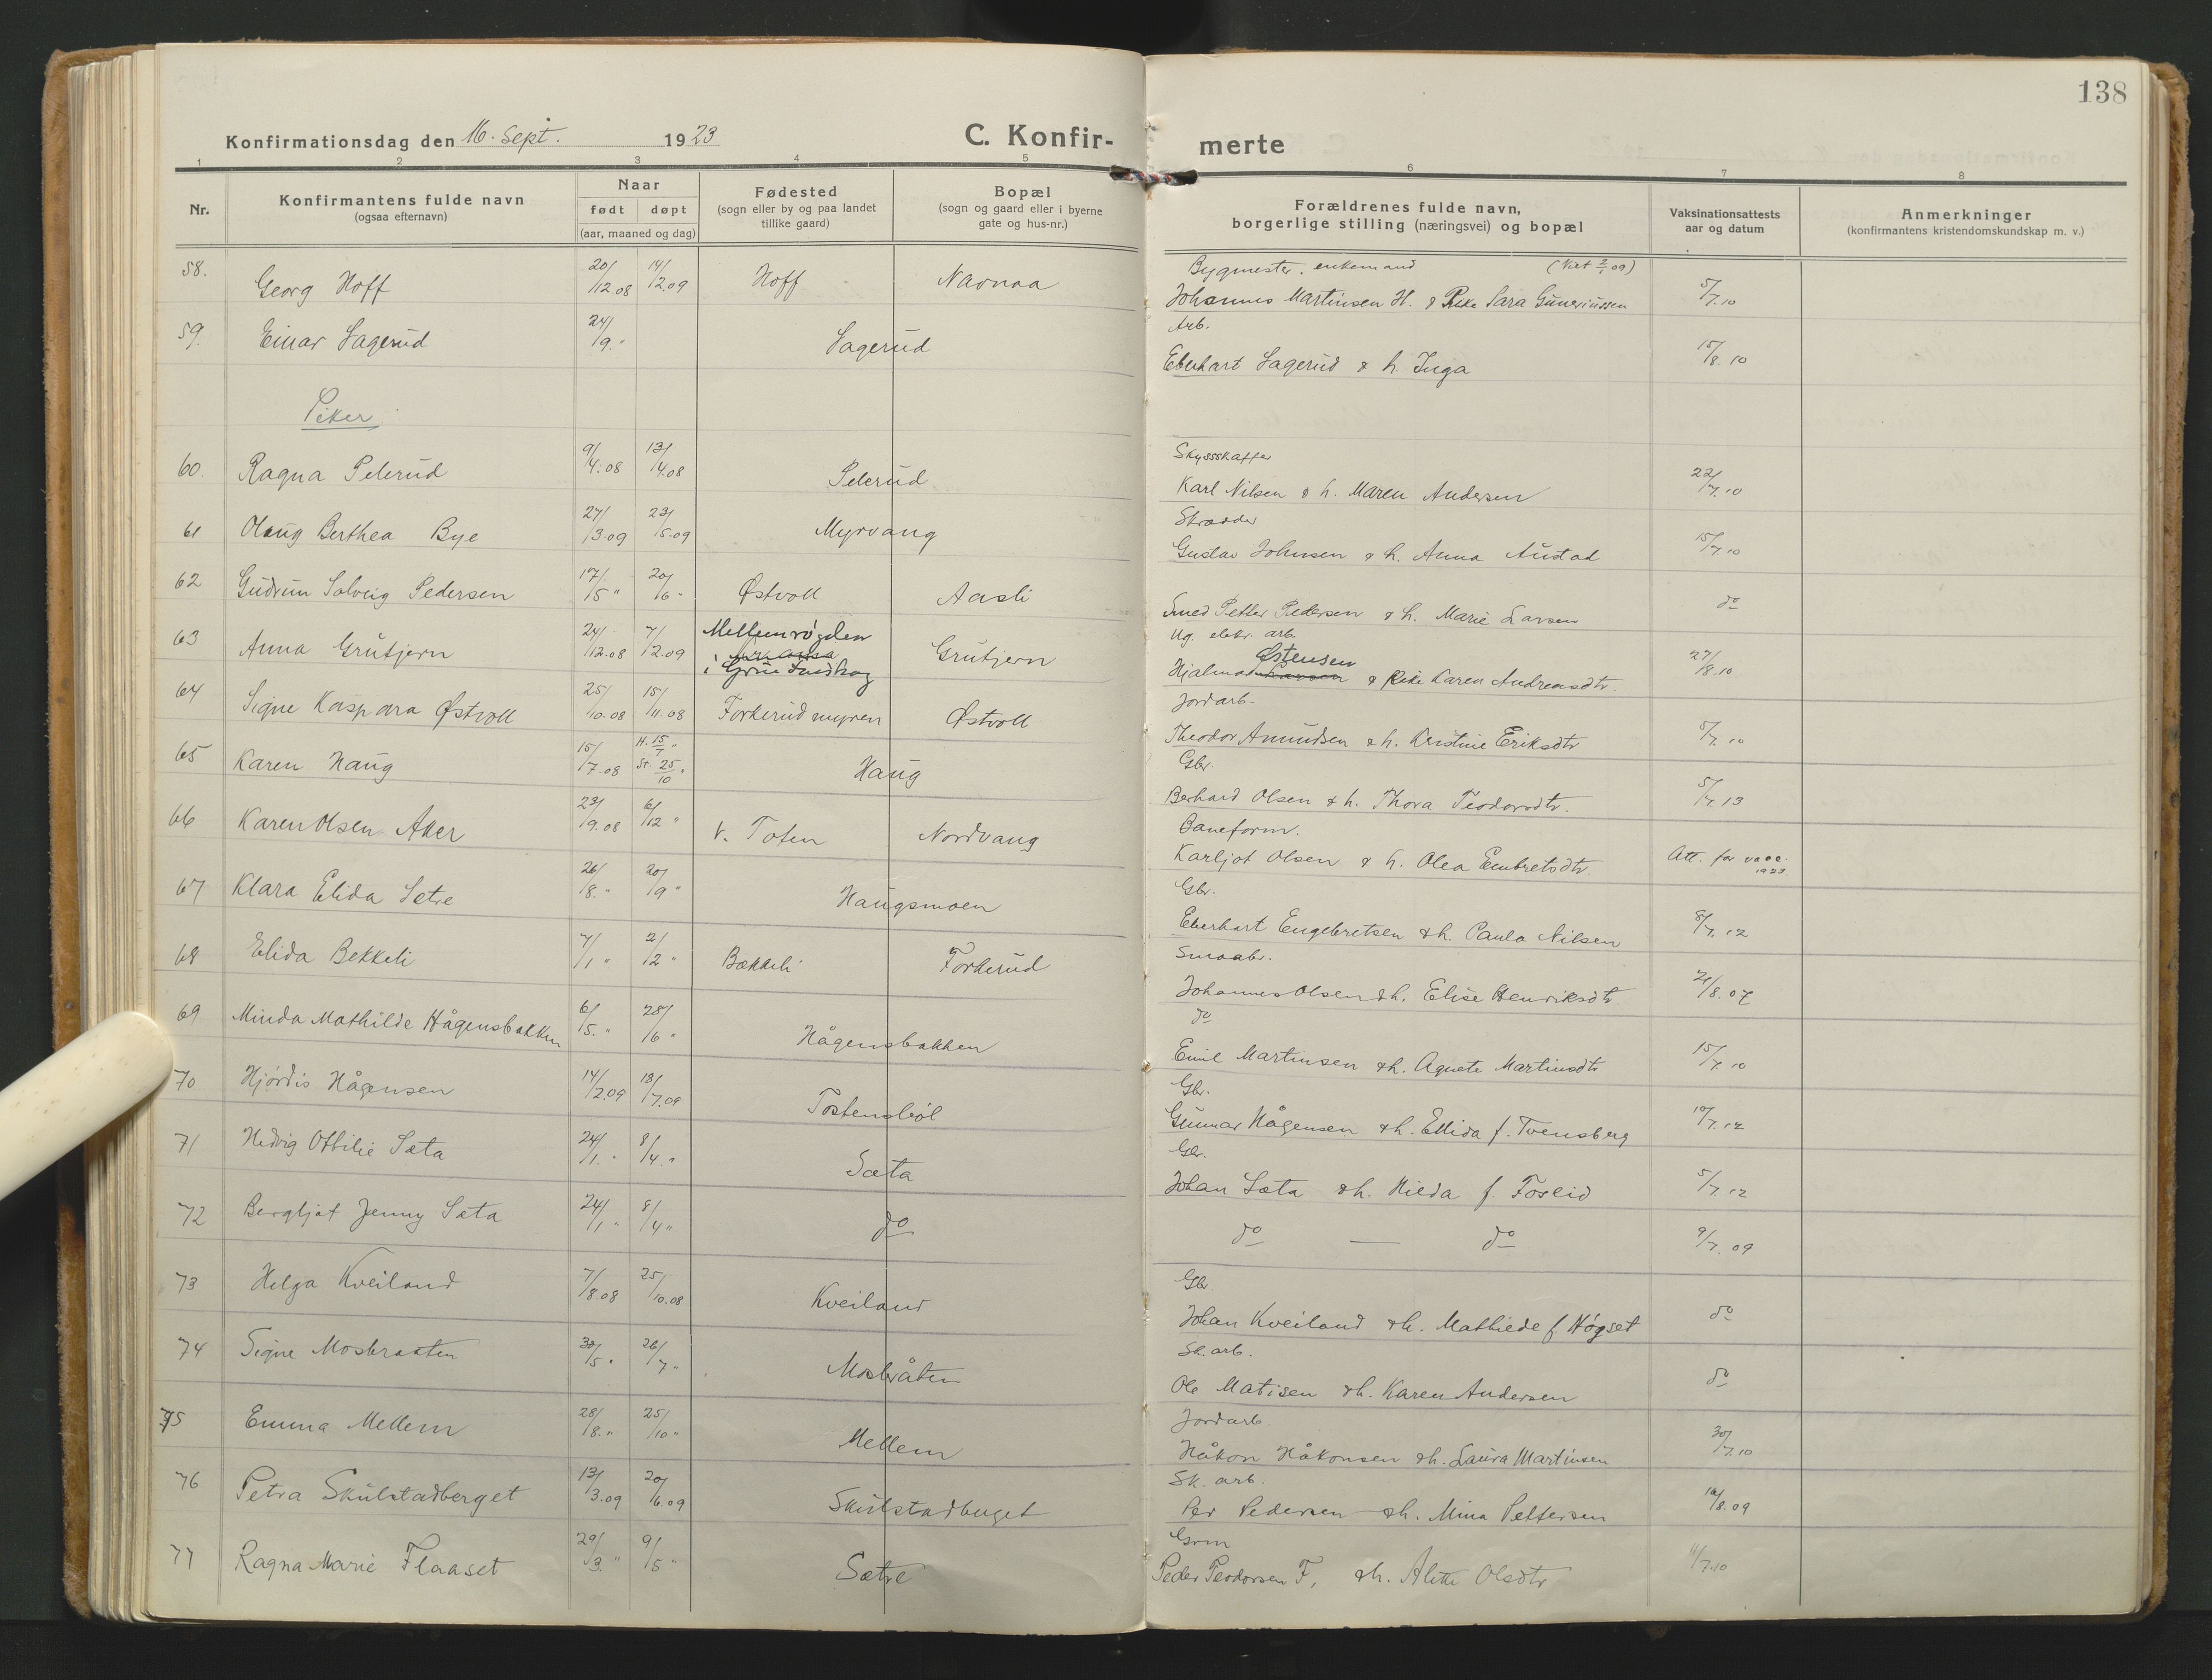 138
Konfirmationsdag den 16. Sept. 1923
C. Konfir- merte
1 2 3 4 5 6 7 8
Nr.
Konfirmantens fulde navn
(ogsaa efternavn)
Naar
født døpt
(aar, maaned og dag)
Fødested
(sogn eller by og paa landet
tillike gaard)
Bopæl
(sogn og gaard eller i byerne
gate og hus-nr.)
Forældrenes fulde navn,
borgerlige stilling (næringsvei) og bopæl
Vaksinationsattests
aar og datum
Anmerkninger
(konfirmantens kristendomskundskap m. v.)
Bygmester, enkemand (Viet 2/1 09)
58. Georg Hoff 20/12 08 14/2.09 Hoff Navnaa Johannes Martinsen H. & Pike Sara Guneriussen 5/7.10
Arb.
59. Einar Lagerud 24/9. " Lagerud Eberhart Lagerud & h. Inga 15/8.10
Piker
Skyssskaffer
60. Ragna Pelerud 9/4.08 13/4.08 Pelerud Karl Nilsen & h. Maren Andersen 22/7.10
Skrædder
61 Olaug Berthea Bye 27/3.09 23/5.09 Myrvang Gustav Johnsen & h. Anna Austad 15/7.10
62 Gudrun Solveig Pedersen 17/5 " 20/6 " Østvoll Aasli Smed Petter Pedersen & h. Marie Larsen do
Ug. elekr. arb.
63 Anna Grutjern 24/12.08 7/2.09 Mellemrøgden i Grue Finskog Grutjern Hjalmar Østensen & Pike Karen Andreasdtr. 27/8.10
Jordarb.
64 Signe Kaspara Østvoll 25/10.08 15/11.08 Forkerudmyren Østvoll Theodor Amundsen & h. Kristine Eriksdtr 5/7.10
Gbr.
65 Karen Haug 15/7.08 H. 15/7 " St. 25/10 " Haug Berhard Olsen & h. Thora Teodorsdtr. 5/7.13
Baneform.
66 Karen Olsen Aker 23/9.08 6/12 " V. Toten Nordvang Karljot Olsen & h. Olea Embretsdtr. Att. for vacc. 1923
Gbr.
67 Klara Elida Sætre 26/8. " 20/9 " Haugsmoen Eberhart Engebretsen & h. Paula Nilsen 8/7.12
Smaabr.
68 Elida Bekkeli 7/1 " 2/2 " Bækkeli Forkerud Johannes Olsen & h. Elise Henriksdtr. 21/8.07
do
69 Minda Mathilde Hågensbakken 6/5. " 28/6 " Hågensbakken Emil Martinsen & h. Agnete Martinsdtr 15/7.10
Gbr.
70 Hjørdis Hågensen 14/2.09 18/7.09 Tostensbøl Gunnar Hågensen & h. Ellida f. Tvensberg 10/7.12
Gbr.
71 Hedvig Ottilie Sæta 24/1. " 8/4. " Sæta Johan Sæta & h. Hilda f. Foseid 5/7.12
72 Bergljot Jenny Sæta 24/1 " 8/4 " do do — do 9/7.09
Gbr
73 Helga Kveiland 7/8.08 25/10.08 Kveiland Johan Kveiland & h. Mathilde f Høgset do
Sk. arb.
74 Signe Mosbraaten 30/5 " 26/7 " Mosbråten Ole Matisen & h. Karen Andersen do
Jordarb.
75 Emma Mellem 28/8. " 25/10 " Mellem Håkon Håkonsen & h. Laura Martinsen 30/7.10
Sk. arb.
76 Petra Skulstadberget 13/3.09 20/6.09 Skulstadberget Per Pedersen & h. Mina Pettersen 18/8.09
Grm
77 Ragna Marie Flaaset 29/3. " 9/5 " Sætre Peder Teodorsen F, & h. Alette Olsdtr 11/7.10